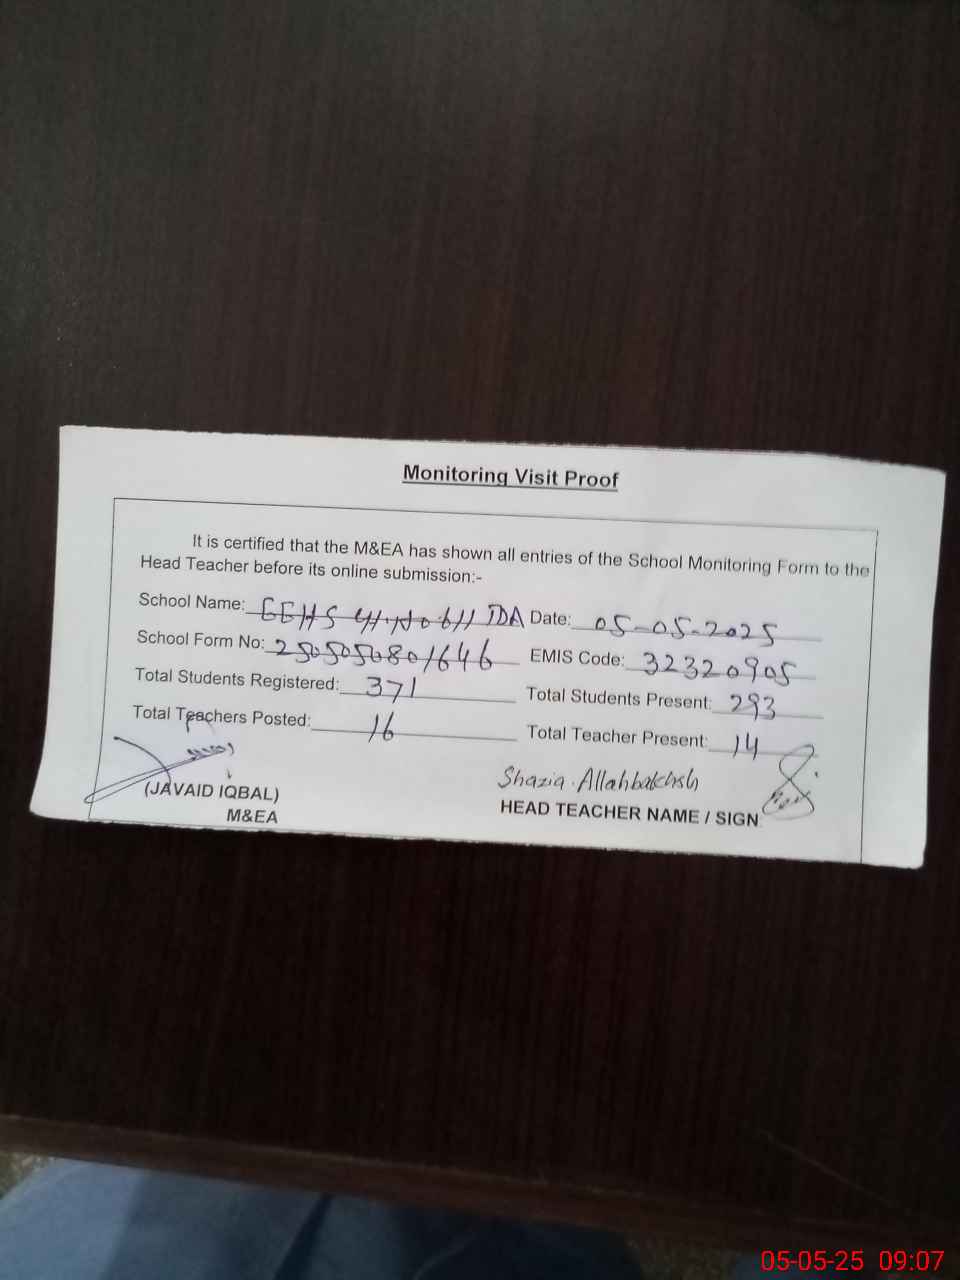 Monitoring Visit Proof
It is certified that the M&EA has shown all entries of the School Monitoring Form to the
Head Teacher before its online submission:-
School Name: GGHS TDA Date: 05-05-2025
School Form No: 2505050801646 EMIS Code: 32320905
Total Students Registered: 371 Total Students Present: 293
Total Teachers Posted: 16 Total Teacher Present: 14
Shazia Allahbakhsh
(JAVAID IQBAL) HEAD TEACHER NAME / SIGN
M&EA
05-05-25 09:07